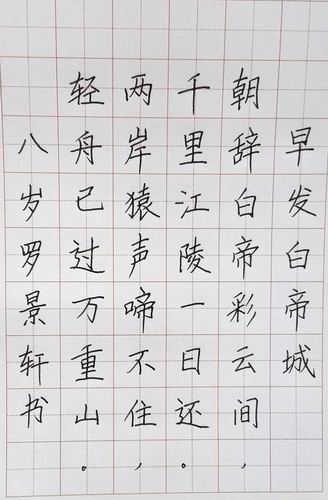 早发白帝城
朝辞白帝彩云间，
千里江陵一日还。
两岸猿声啼不住，
轻舟已过万重山。
八岁罗景轩书